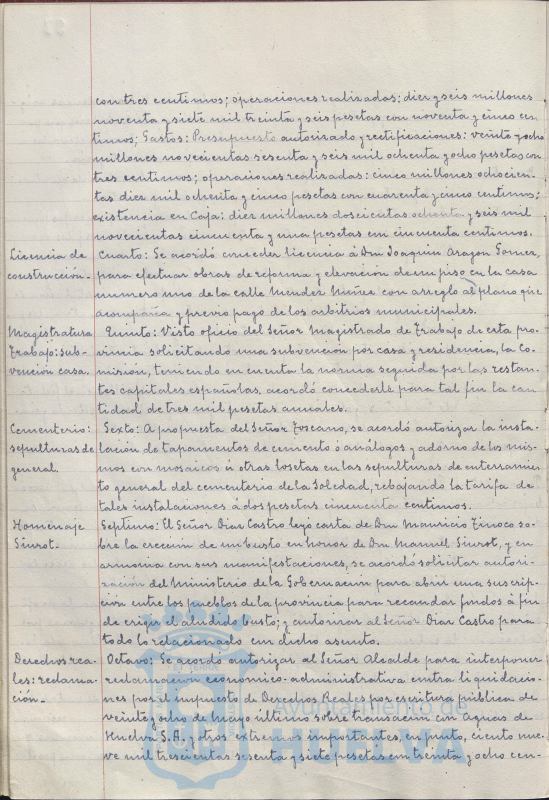 con tres centimos; operaciones realizadas: diez y seis millones
noventa y siete mil treinta y seis pesetas con noventa y cinco cen-
timos; Gastos: Presupuesto autorizado y rectificaciones: veinte y ocho
millones novecientas sesenta y seis mil ochenta y ocho pesetas con
tres centimos; operaciones realizadas: cinco millones ochocien-
tas diez mil ochenta y cinco pesetas con cuarenta y cinco centimos;
existencia en Caja: diez millones doscientas ochenta y seis mil
novecientas cincuenta y una pesetas con cincuenta centimos.
Licencia de construcción.-
Cuarto: Se acordó conceder licencia á Don Joaquin Aragon Gomez,
para efectuar obras de reforma y elevación de un piso en la casa
numero uno de la calle Mendez Nuñez con arreglo al plano que
acompaña y previo pago de los arbitrios municipales.
Magistratura Trabajo: sub-
vención casa.
Quinto: Visto oficio del Señor Magistrado de Trabajo de esta pro-
vincia solicitando una subvención por casa y residencia, la Co-
mision, teniendo en cuenta la norma seguida por las restan-
tes capitales españolas, acordó concederle para tal fin la can-
tidad de tres mil pesetas anuales.
Cementerio:
sepulturas de
general.
Sexto: A propuesta del Señor Toscano, se acordó autorizar la insta-
lación de tapamentos de cemento ó análogos y adorno de los mis-
mos con mosaicos ú otras losetas en las sepulturas de enterramien-
to general del cementerio de la Soledad, rebajando la tarifa de
tales instalaciones á dos pesetas cincuenta centimos.
Homenaje
Siurot.-
Septimo: El Señor Diaz Castro leyó carta de Don Mauricio Tinoco so-
bre la ereccion de un busto en honor de Don Manuel Siurot, y en
armonia con sus manifestaciones, se acordó solicitar autori-
zación del Ministerio de la Gobernación para abrir una suscrip-
ción entre los pueblos de la provincia para recaudar fondos á fin
de erigir el aludido busto; y autorizar al Señor Diaz Castro para
todo lo relacionado con dicho asunto.
Derechos rea-
les: reclama-
ción.-
Octavo: Se acordó autorizar al Señor Alcalde para interponer
reclamacion económico-administrativa contra liquidacio-
nes por el impuesto de Derechos Reales por escritura pública de
veinte y ocho de Mayo último sobre transaccion con Aguas de
Huelva S.A. y otros extremos importantes, en junto, ciento nue-
ve mil trescientas sesenta y siete pesetas con treinta y ocho cen-
Ayuntamiento de
HUELVA